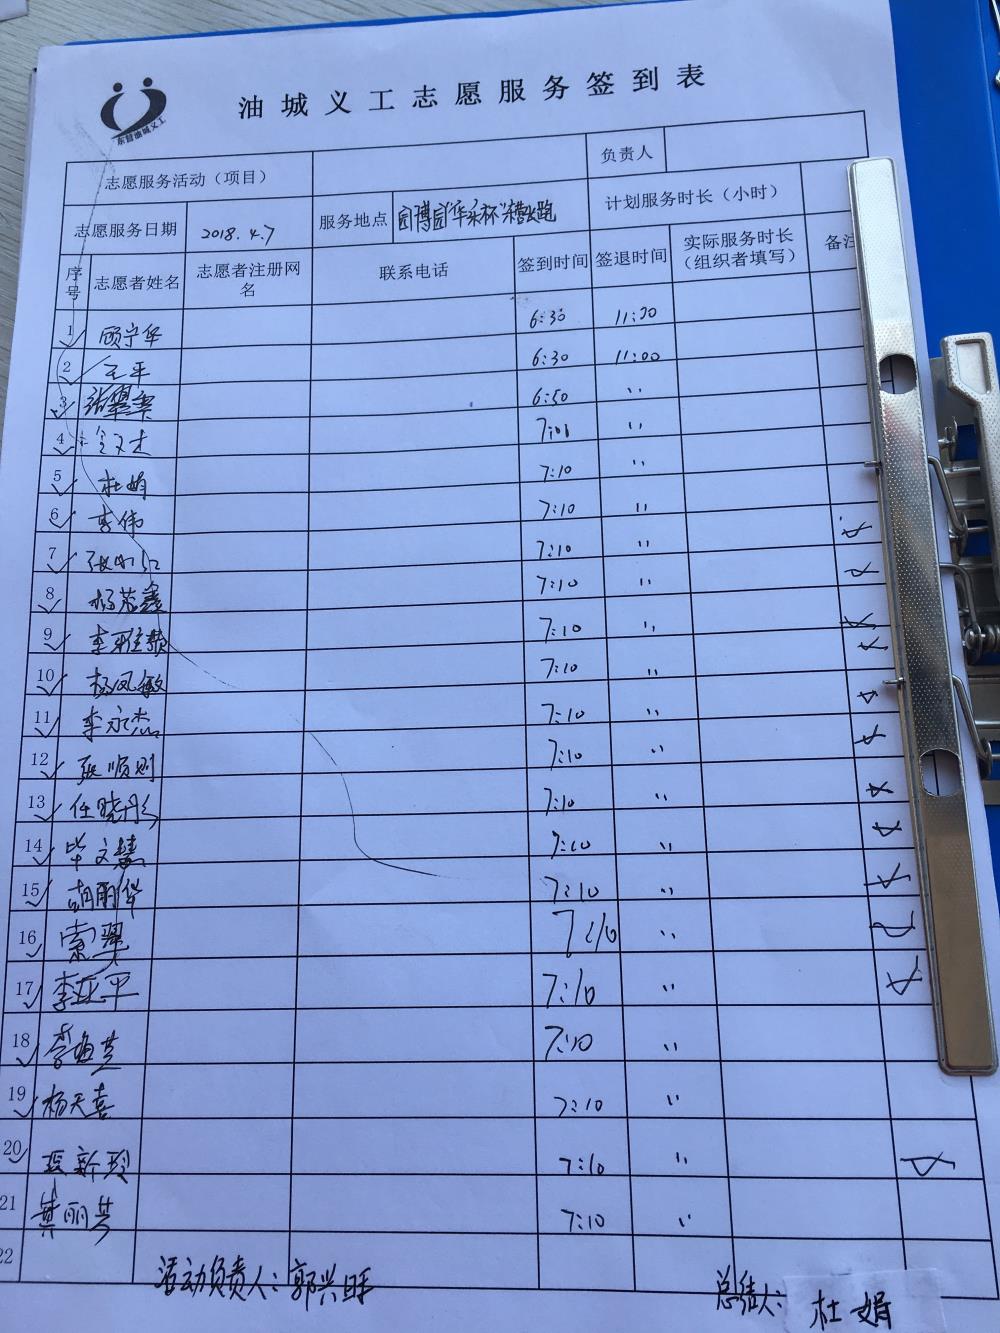 东营油城义工
油城义工志愿服务签到表
志愿服务活动（项目） 负责人
志愿服务日期 2018.4.7 服务地点 园博园华永杯 跑 计划服务时长（小时）
序号 志愿者姓名 志愿者注册网名 联系电话 签到时间 签退时间 实际服务时长（组织者填写） 备注
1 顾宁华 6:30 11:00
2 王平 6:30 11:00
3 张翠翠 6:50 〃
4 7:01 〃
5 杜娟 7:10 〃
6 李伟 7:10 〃
7 张 7:10 〃
8 杨荣鑫 7:10 〃
9 李雅赞 7:10 〃
10 杨凤敏 7:10 〃
11 李永杰 7:10 〃
12 张顺则 7:10 〃
13 任晓彤 7:10 〃
14 毕文慧 7:10 〃
15 胡丽华 7:10 〃
16 索翠 7:10 〃
17 李亚平 7:10 〃
18 李海芝 7:10 〃
19 杨天喜 7:10 〃
20 新玲 7:10 〃
21 黄丽芬 7:10 〃
22
活动负责人：郭兴旺 总结人：杜娟